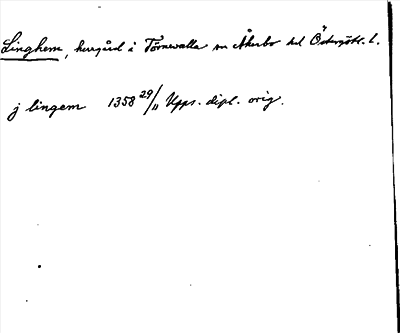 Linghem, herrgård i Törnevalla sn Åkerbo hd Östergötl. l.
j lingem 1358 29/11 Upps. dipl. orig.